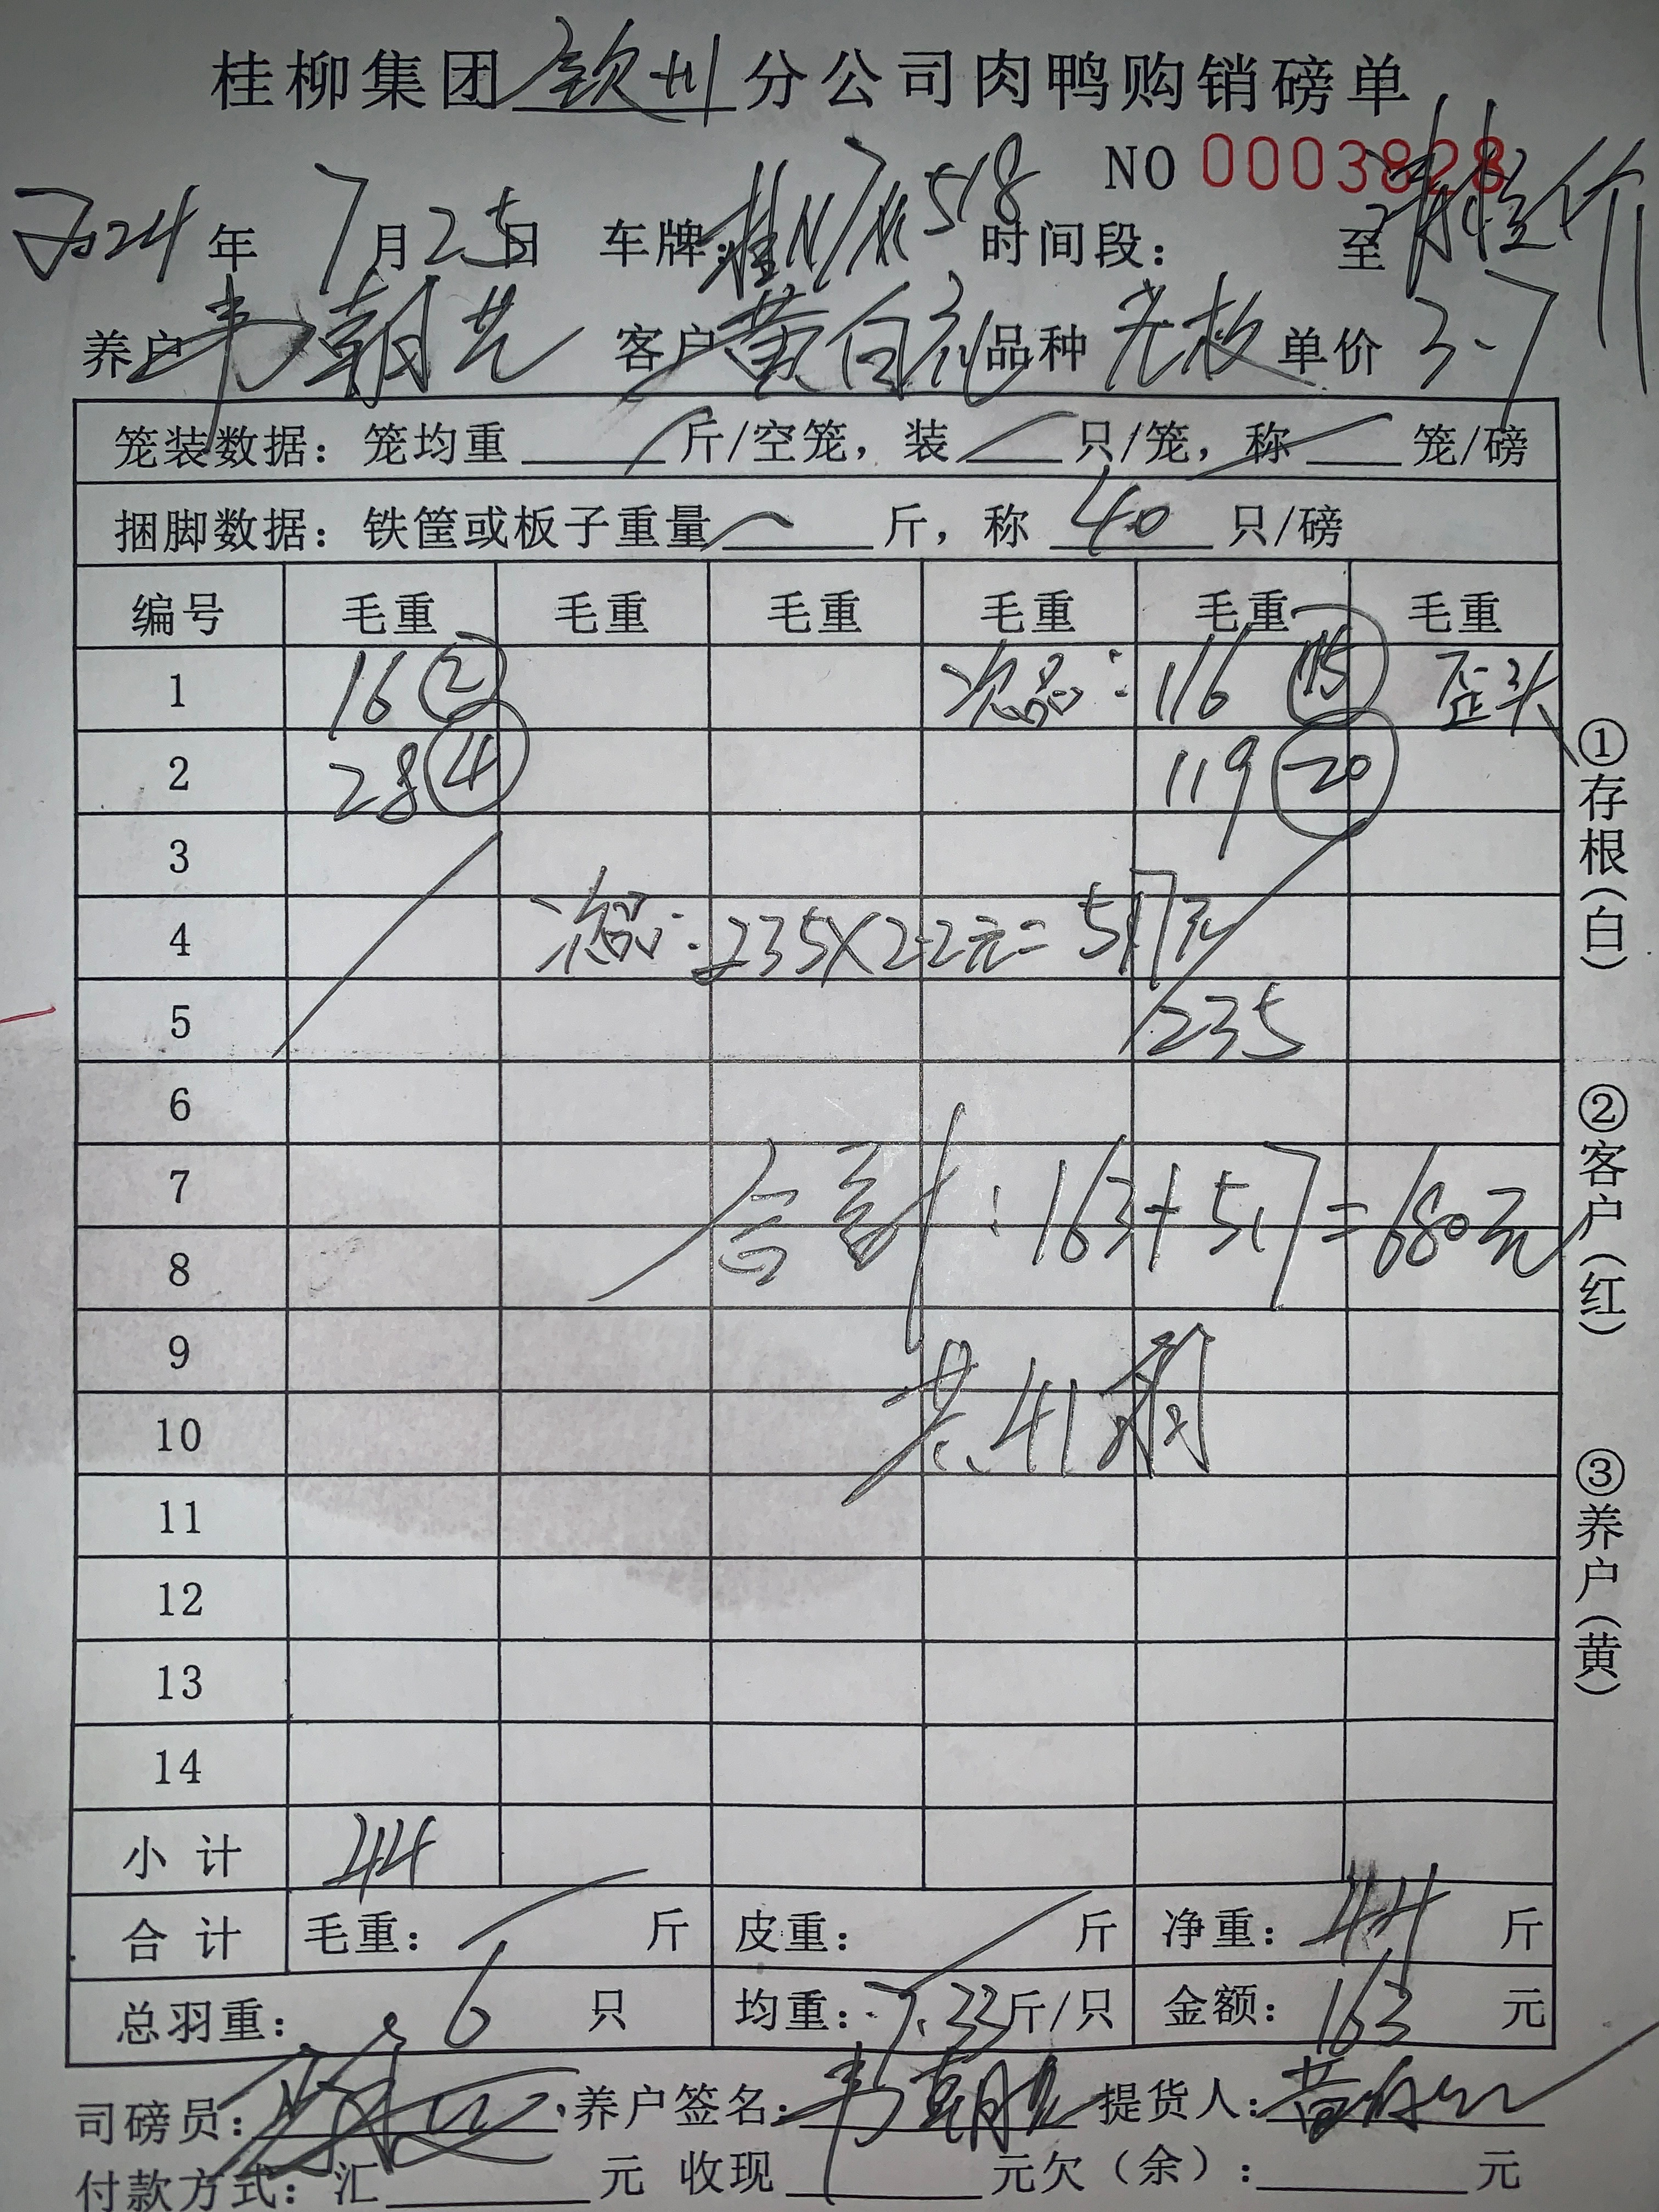 桂柳集团钦州分公司肉鸭购销磅单
NO 0003828
2024年7月25日 车牌:桂N 518 时间段: 至
养户韦朝 客户黄 品种 单价3.7
笼装数据:笼均重 斤/空笼,装 只/笼,称 笼/磅
捆脚数据:铁筐或板子重量 斤,称 40 只/磅
编号 毛重 毛重 毛重 毛重 毛重 毛重
1 16 ② 次品: 116 ⑮ 歪头
2 28 ④ 119 ⑳
3
4 次品:235×2.2元=517元
5 235
6
7 合计:163+517=680元
8
9 共41羽
10
11
12
13
14
小计 44
合计 毛重: 斤 皮重: 斤 净重:44斤
总羽重:6只 均重:7.33斤/只 金额:163元
司磅员: 养户签名:韦朝 提货人:黄
付款方式:汇 元 收现 元欠(余): 元
①存根(白)
②客户(红)
③养户(黄)